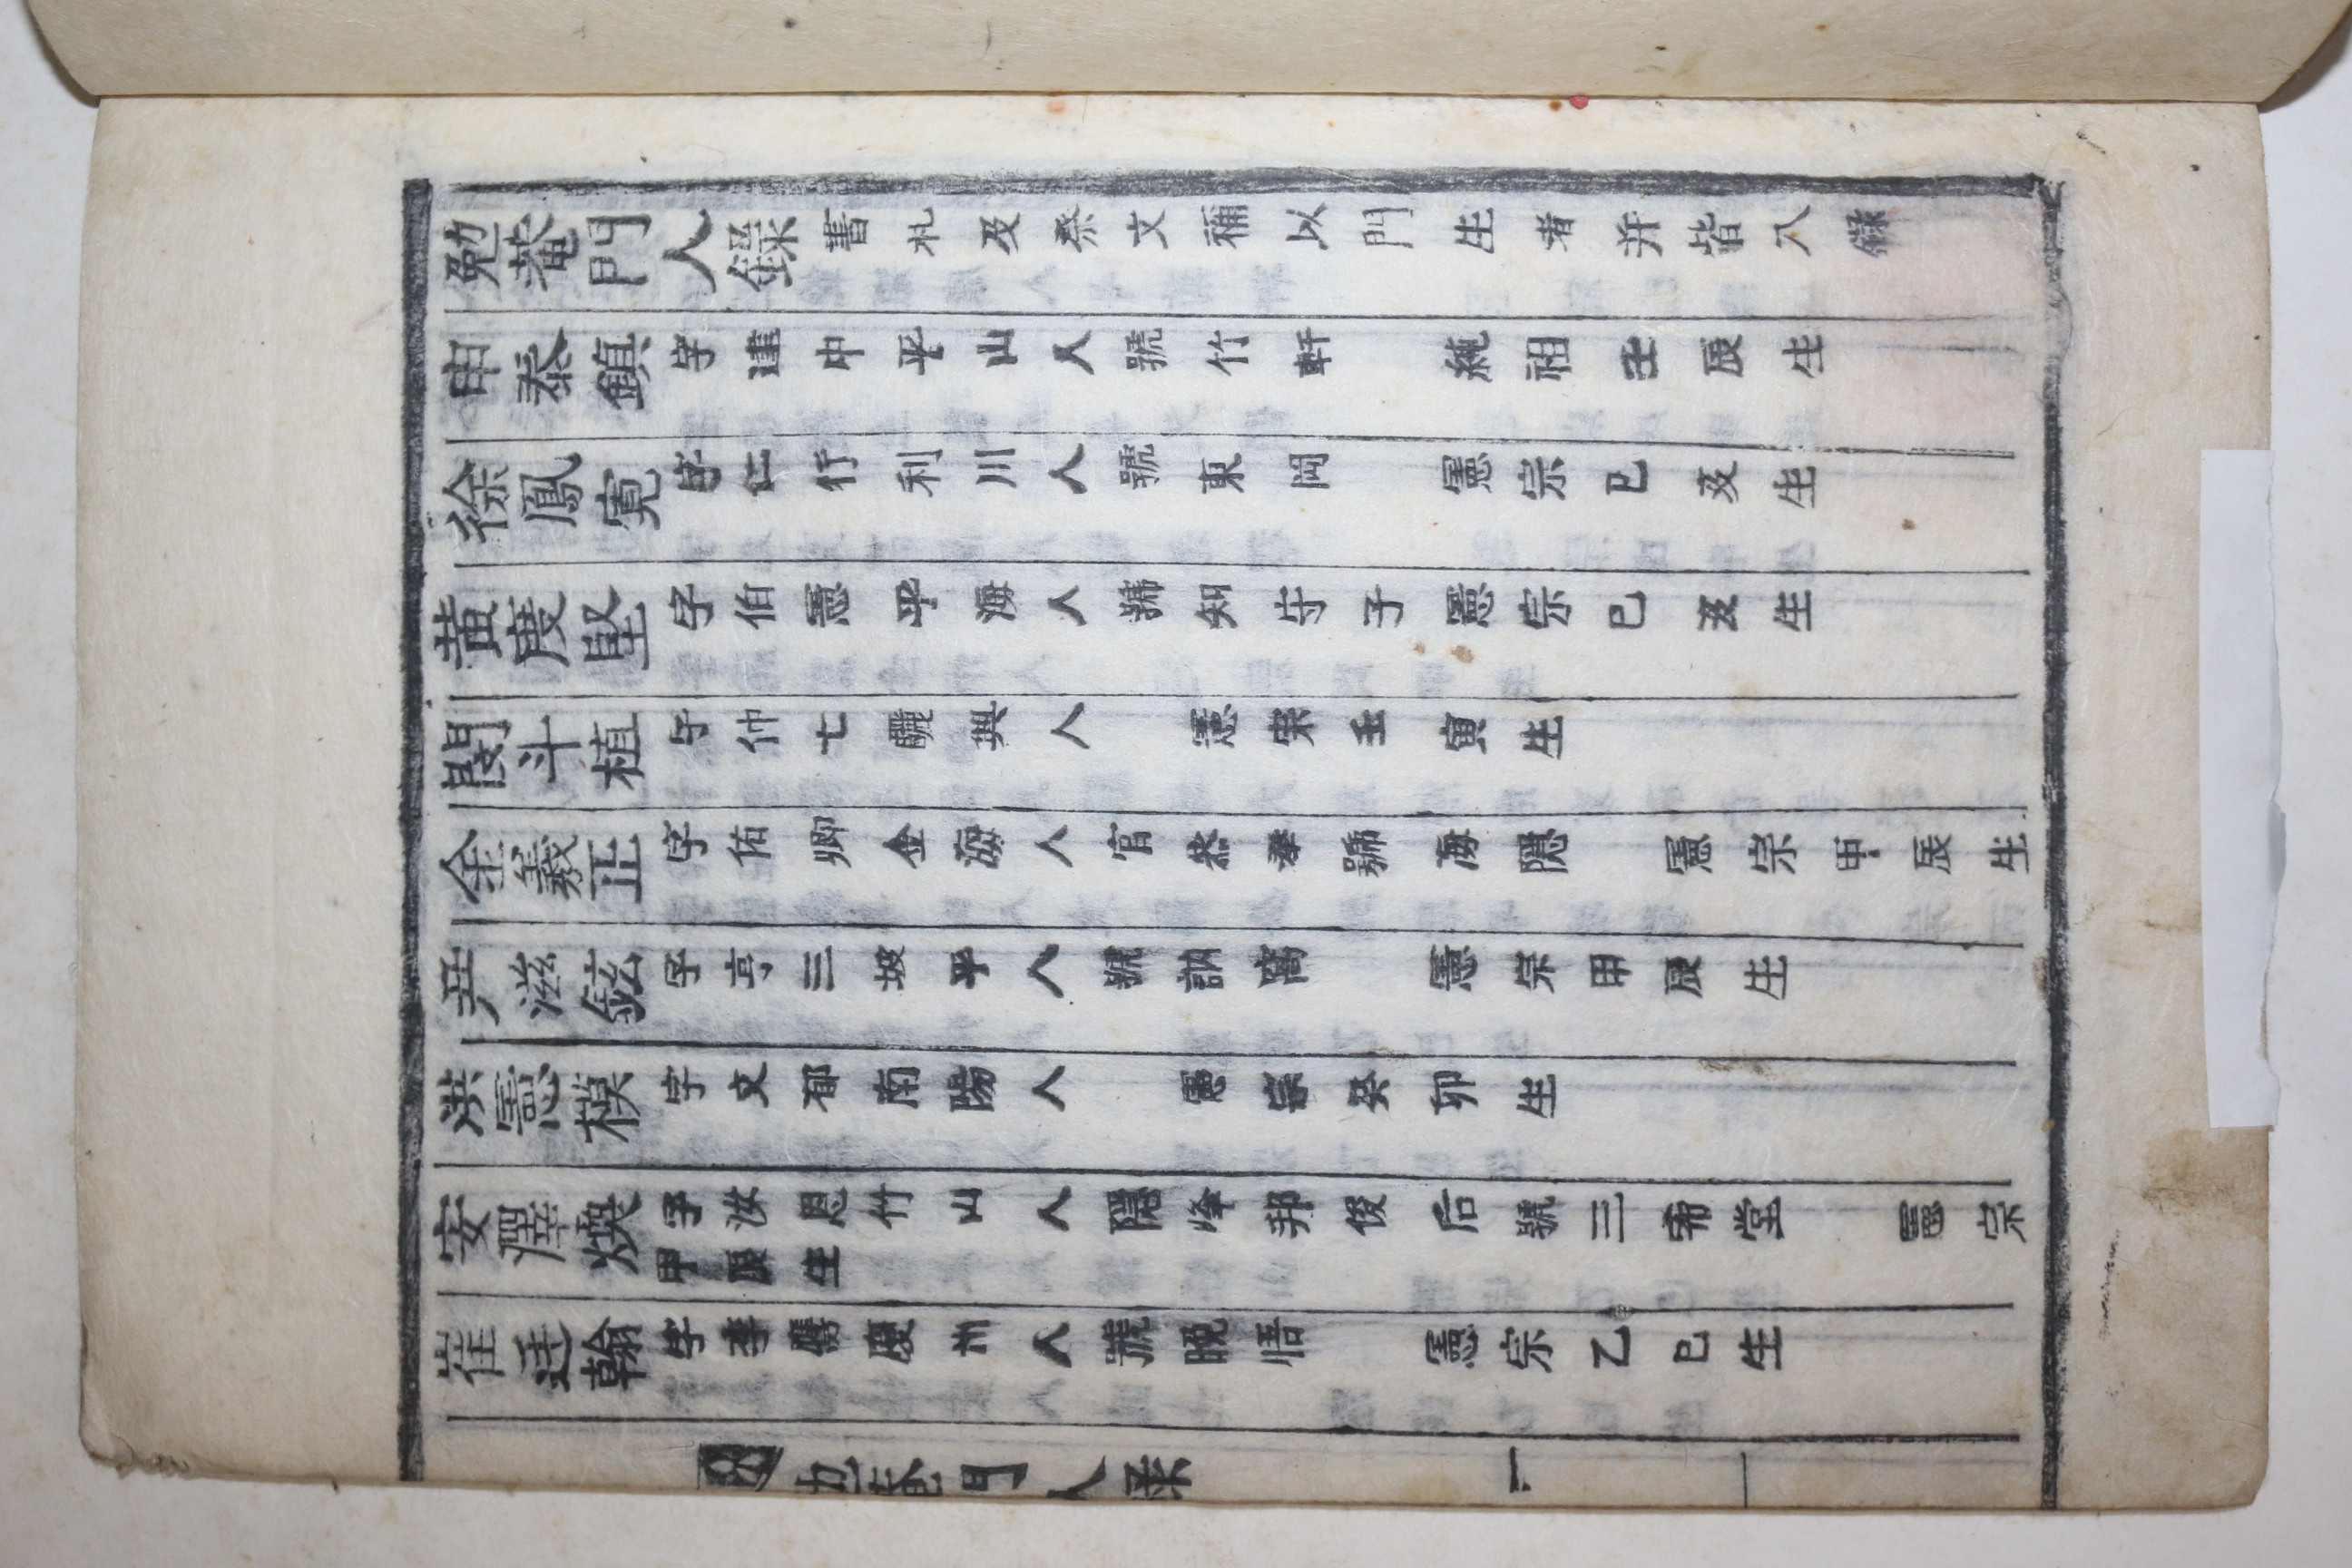 勉菴門人錄 書札及祭文稱以門生者并皆入錄
申泰鎭 字建中平山人號竹軒 純祖壬辰生
徐鳳寬 字仁行利川人號東岡 憲宗己亥生
黃度堅 字伯憲平海人號知守子憲宗己亥生
閔斗植 字仲七驪興人 憲宗壬寅生
金義正 字佑卿金海人官參奉號海隱 憲宗甲辰生
尹滋鉉 字 三坡平人號訥窩 憲宗甲辰生
洪憲模 字文郁南陽人 憲宗癸卯生
安澤煥 字汝恩竹山人隱峰邦俊后號三希堂 憲宗
甲辰生
崔達翰 字 慶州人號晚悟 憲宗乙巳生
勉菴門人錄 一